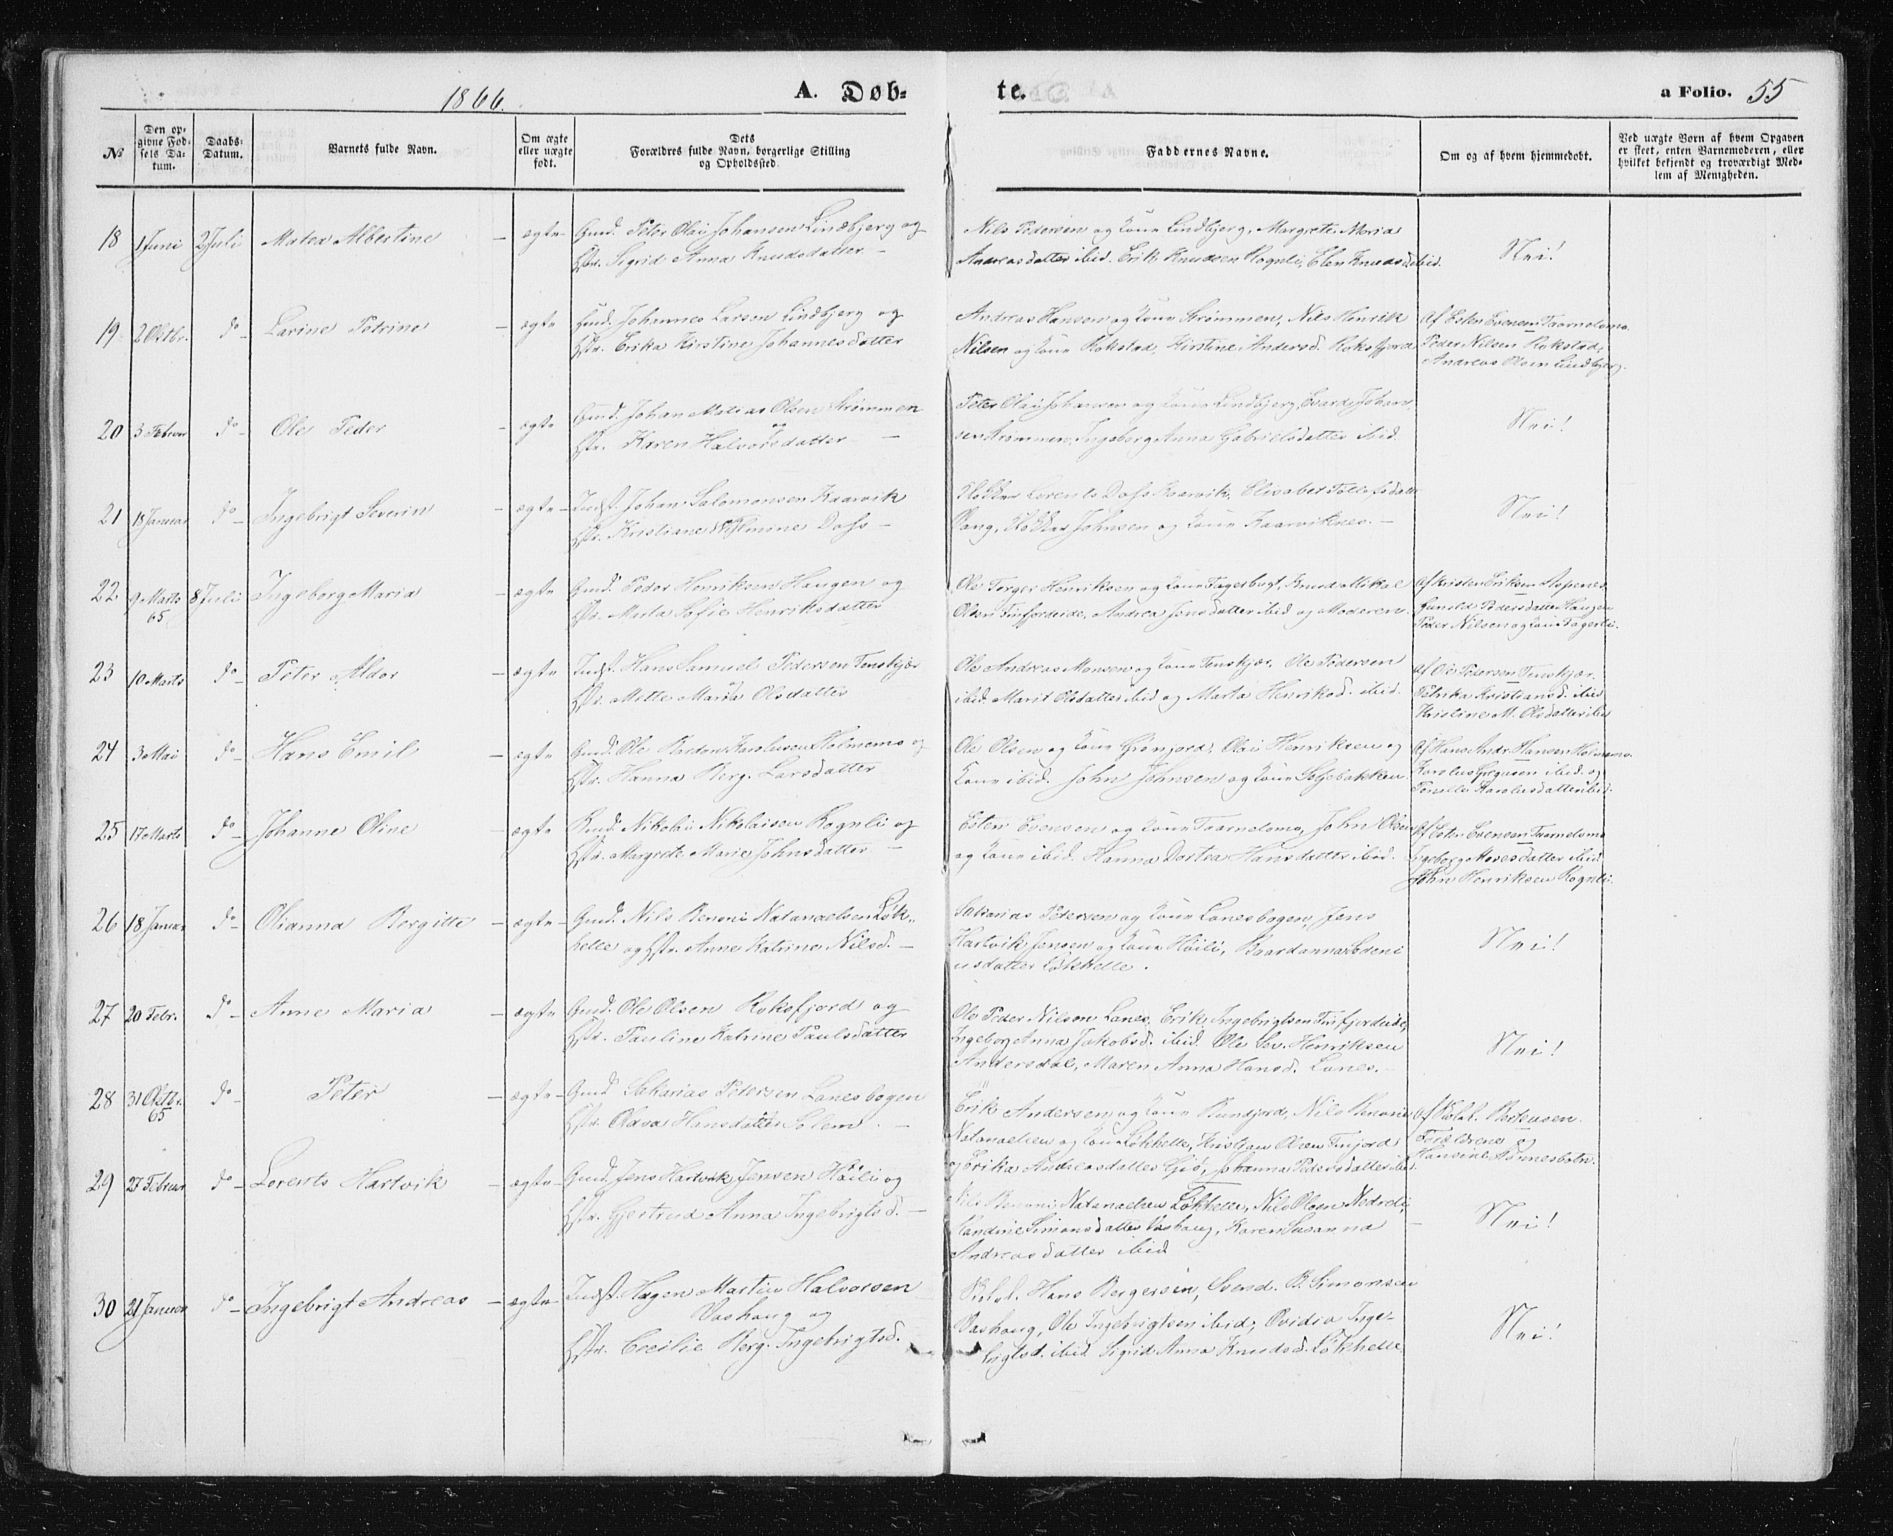 1866.
A. Døb-
te.
a Folio. 55
No
Den op-
givne Fød-
sels Da-
tum.
Daabs-
Datum.
Barnets fulde Navn.
Om ægte
eller uægte
født.
Dets
Forældres fulde Navn, borgerlige Stilling
og Opholdssted.
Faddernes Navne.
Om og af hvem hjemmedøbt.
Ved uægte Børn af hvem Opgaven
er skeet, enten Barnemoderen, eller
hvilket bekjendt og troværdigt Med-
lem af Menigheden.
18 1 Juni 2 Juli Matea Albertine – ægte Gmd. Peter Olai Johansen Lindbjerg og
Hstr. Sigrid Anna Knudsdatter –
Nils Pedersen og Kone Lindbjerg, Margrete Maria
Andreasdatter ibid. Erik Knudsen Rognli, Elen Knudsd. ibid.
Nei!
19 2 Oktbr. do – Larine Petrine – ægte Gmd. Johannes Larsen Lindbjerg og
Hstr. Erika Kirstine Johannesdatter
Andreas Hansen og Kone Strømmen, Nils Henrik
Nilsen og Kone Rokstad, Kirstine Andersd. Roksfjord
Af Esten Evensen Taarnelomo
Peder Nilsen Rokstad,
Andreas Olsen Lindbjerg.
20 3 Februar do – Ole Peder – ægte Gmd. Johan Matias Olsen Strømmen
og
Hstr. Karen Halvorsdatter –
Peter Olai Johansen og Kone Lindbjerg, Evard Johan-
sen Strømmen, Ingeborg Anna Gabrielsdatter ibid.
Nei!
21 18 Januar do – Ingebrigt Severin – ægte – Indst. Johan Salomonsen Kaarvik
Hstr. Kristiane Dass –
Lorents Dass Kaarvik, Elisabet
Vang, Johnsen og Kone Kaarviknes. –
Nei!
22 9 Marts 65 8 Juli Ingeborg Maria – ægte Gmd. Peder Henriksen Haugen og
Hstr. Marta Sofie Henriksdatter
Ole Torger Henriksen og Kone Fagerbugt, Knud Mikal
Olsen Finfjordeide, Andrea Jensdatter ibid og Moderen.
Af Kristen Eriksen Aspenes
Gunild Pedersdatter Haugen
Peder Nilsen og Kone Fagerli.
23 10 Marts do – Peter Aldor – ægte Indst. Hans Samuel Pedersen Tenskjær
Hstr. Mette Maria Olsdatter
Ole Andreas Monsen og Kone Tenskjær, Ole Pedersen
ibid. Marit Olsdatter ibid og Marta Henriksd. ibid.
Af Ole Pedersen Tenskjær.
Petrika Kristiansd. ibid
Kristine M. Olsdatter ibid
24 3 Mai do – Hans Emil – ægte Gmd. Ole Karolusen Holmemo og
Hstr. Hanna Berg. Larsdatter
Ole Olsen og Kone Grønjord, Olai Henriksen og
Kone ibid. John Johnsen og Kone Seljebakken.
Af Hans Andr. Hansen Holmemo
Karolus ibid. og
Karolusdatter ibid.
25 17 Marts do – Johanne Oline – ægte Gmd. Nikolai Nikolaisen Rognli og
Hstr. Margrete Marie Johnsdatter –
Esten Evensen og Kone Taarnelomo, John Olsen
og Kone ibid. Hanna Dortea Hansdatter ibid.
Af Esten Evensen Taarnelomo
Ingeborg Mosesdatter ibid
John Henriksen Rognli.
26 18 Januar do – Olianna Bergitte – ægte – Gmd. Nils Benoni Natanaelsen Løk-
helle og Hstr. Anne Katrine Nilsd. –
Sakarias Petersen og Kone Lanesbogen, Jens
Hartvik Jensen og Kone Høili,
datter Løkhelle.
Nei!
27 20 Febr. do – Anne Maria – ægte Gmd. Ole Olsen Roksfjord og
Hstr. Pauline Katrine Paulsdatter
Ole Peder Nilsen Lanes, Erik Ingebrigtsen Finfjordeide,
Ingeborg Anna Jakobsd. ibid. Ole Sev. Henriksen
Andersdal, Maren Anna Hansd. Lanes. –
Nei!
28 31 Oktbr. 65 do – Peter – ægte – Gmd Sakarias Petersen Lanesbogen
Hstr. Olava Hansdatter Solem. –
Erik Andersen og Kone Rundjord, Nils Benoni
Natanaelsen og Kone Løkhelle, Kristian Olsen Finjord
og Erika Andreasdatter Gjø, Johanna Pedersdatter ibid.
Af Bertensen
Forældrene og
Hansine Tønnesbotn.
29 27 Februar do – Lorents Hartvik – ægte – Gmd. Jens Hartvik Jensen Høili og
Hstr. Gjertrud Anna Ingebrigtsd. –
Nils Benoni Natanaelsen Løkhelle, Nils Olsen Nedreli,
Simonsdatter Vashaug, Karen Susanna
Andreasdatter ibid
Nei!
30 21 Januar do – Ingebrigt Andreas – ægte – Indst. Hagen Martin Halvorsen
Vashaug og
Hstr. Cecilie Berg. Ingebrigtsd.
Hans Bergersen, Svend. B. Simonsen
Vashaug, Ole Ingebrigtsen ibid, Ovidia Inge-
brigtsd. ibid Sigrid Anna Knudsd. Løkhelle.
Nei!